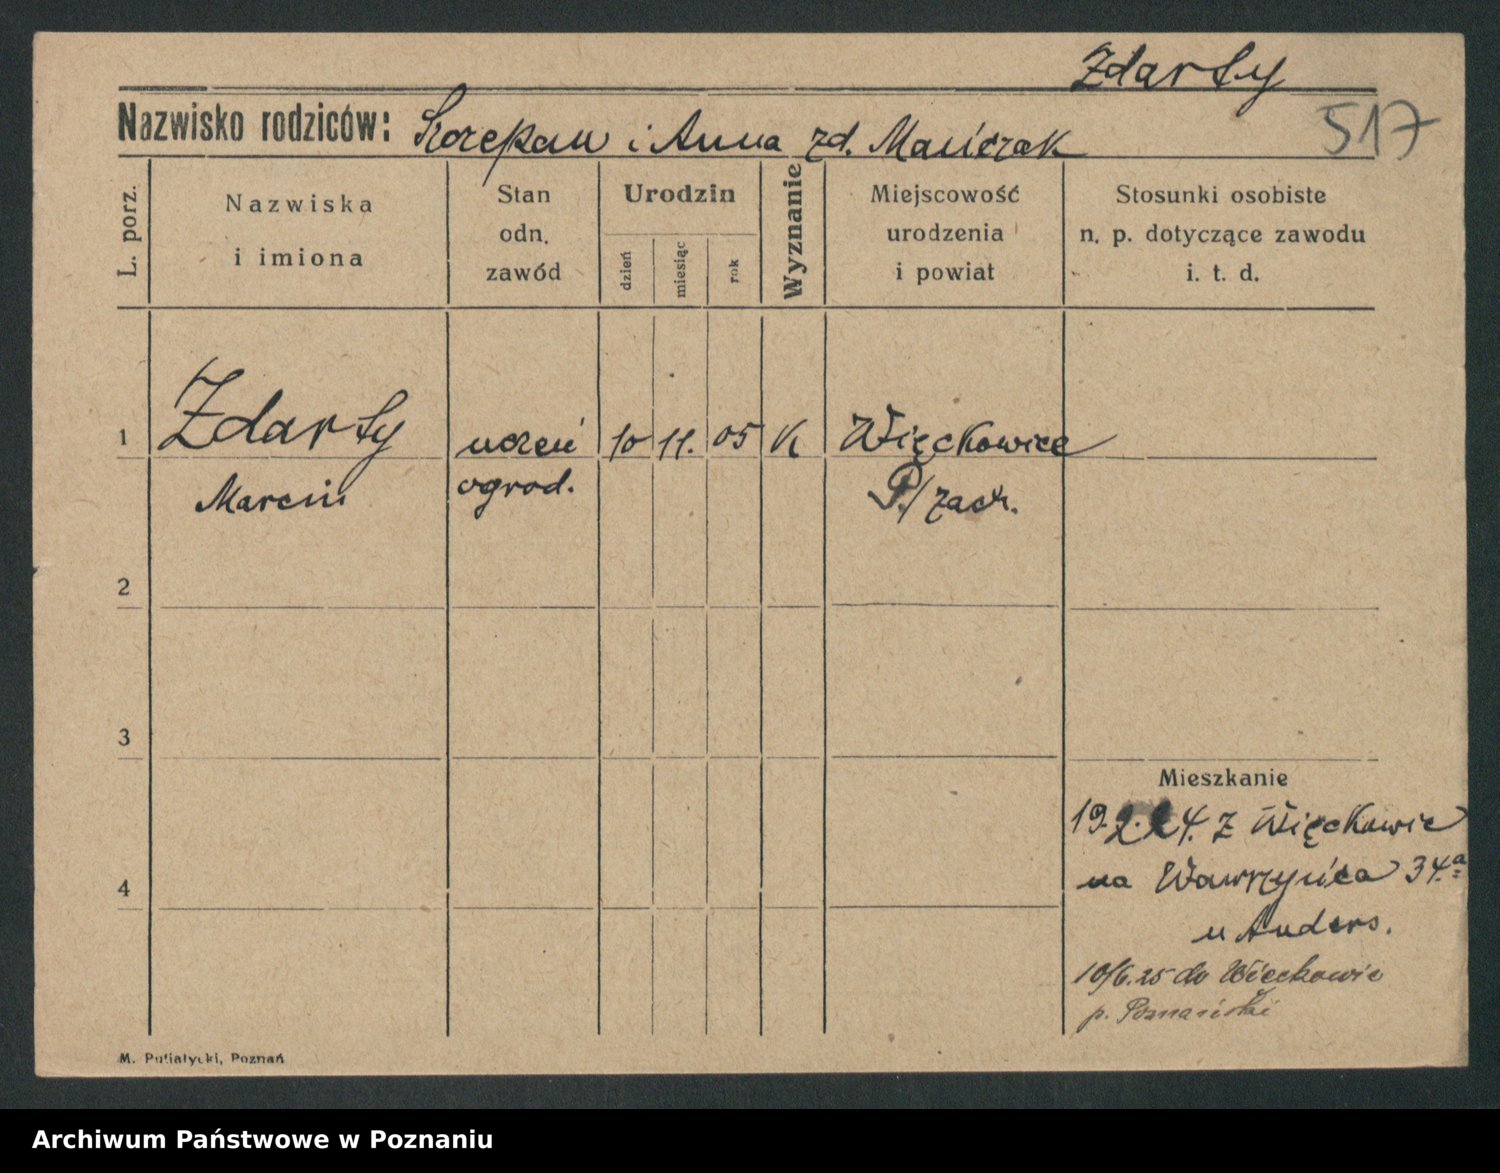 Zdarty
517
Nazwisko rodziców: Szczepan i Anna zd. Mańczak
L. porz.
Nazwiska
i imiona
Stan
odn.
zawód
Urodzin
dzień
miesiąc
rok
Wyznanie
Miejscowość
urodzenia
i powiat
Stosunki osobiste
n. p. dotyczące zawodu
i. t. d.
1 Zdarty uczeń 10 11. 05 K Więckowice
Marcin ogrod. P./zach.
2
3
Mieszkanie
19.2.24. z Więckowic
4
na Wawrzyńca 34.a
u Anders.
10/6.25 do Więckowic
p. Poznański
M. Putiatycki, Poznań
Archiwum Państwowe w Poznaniu